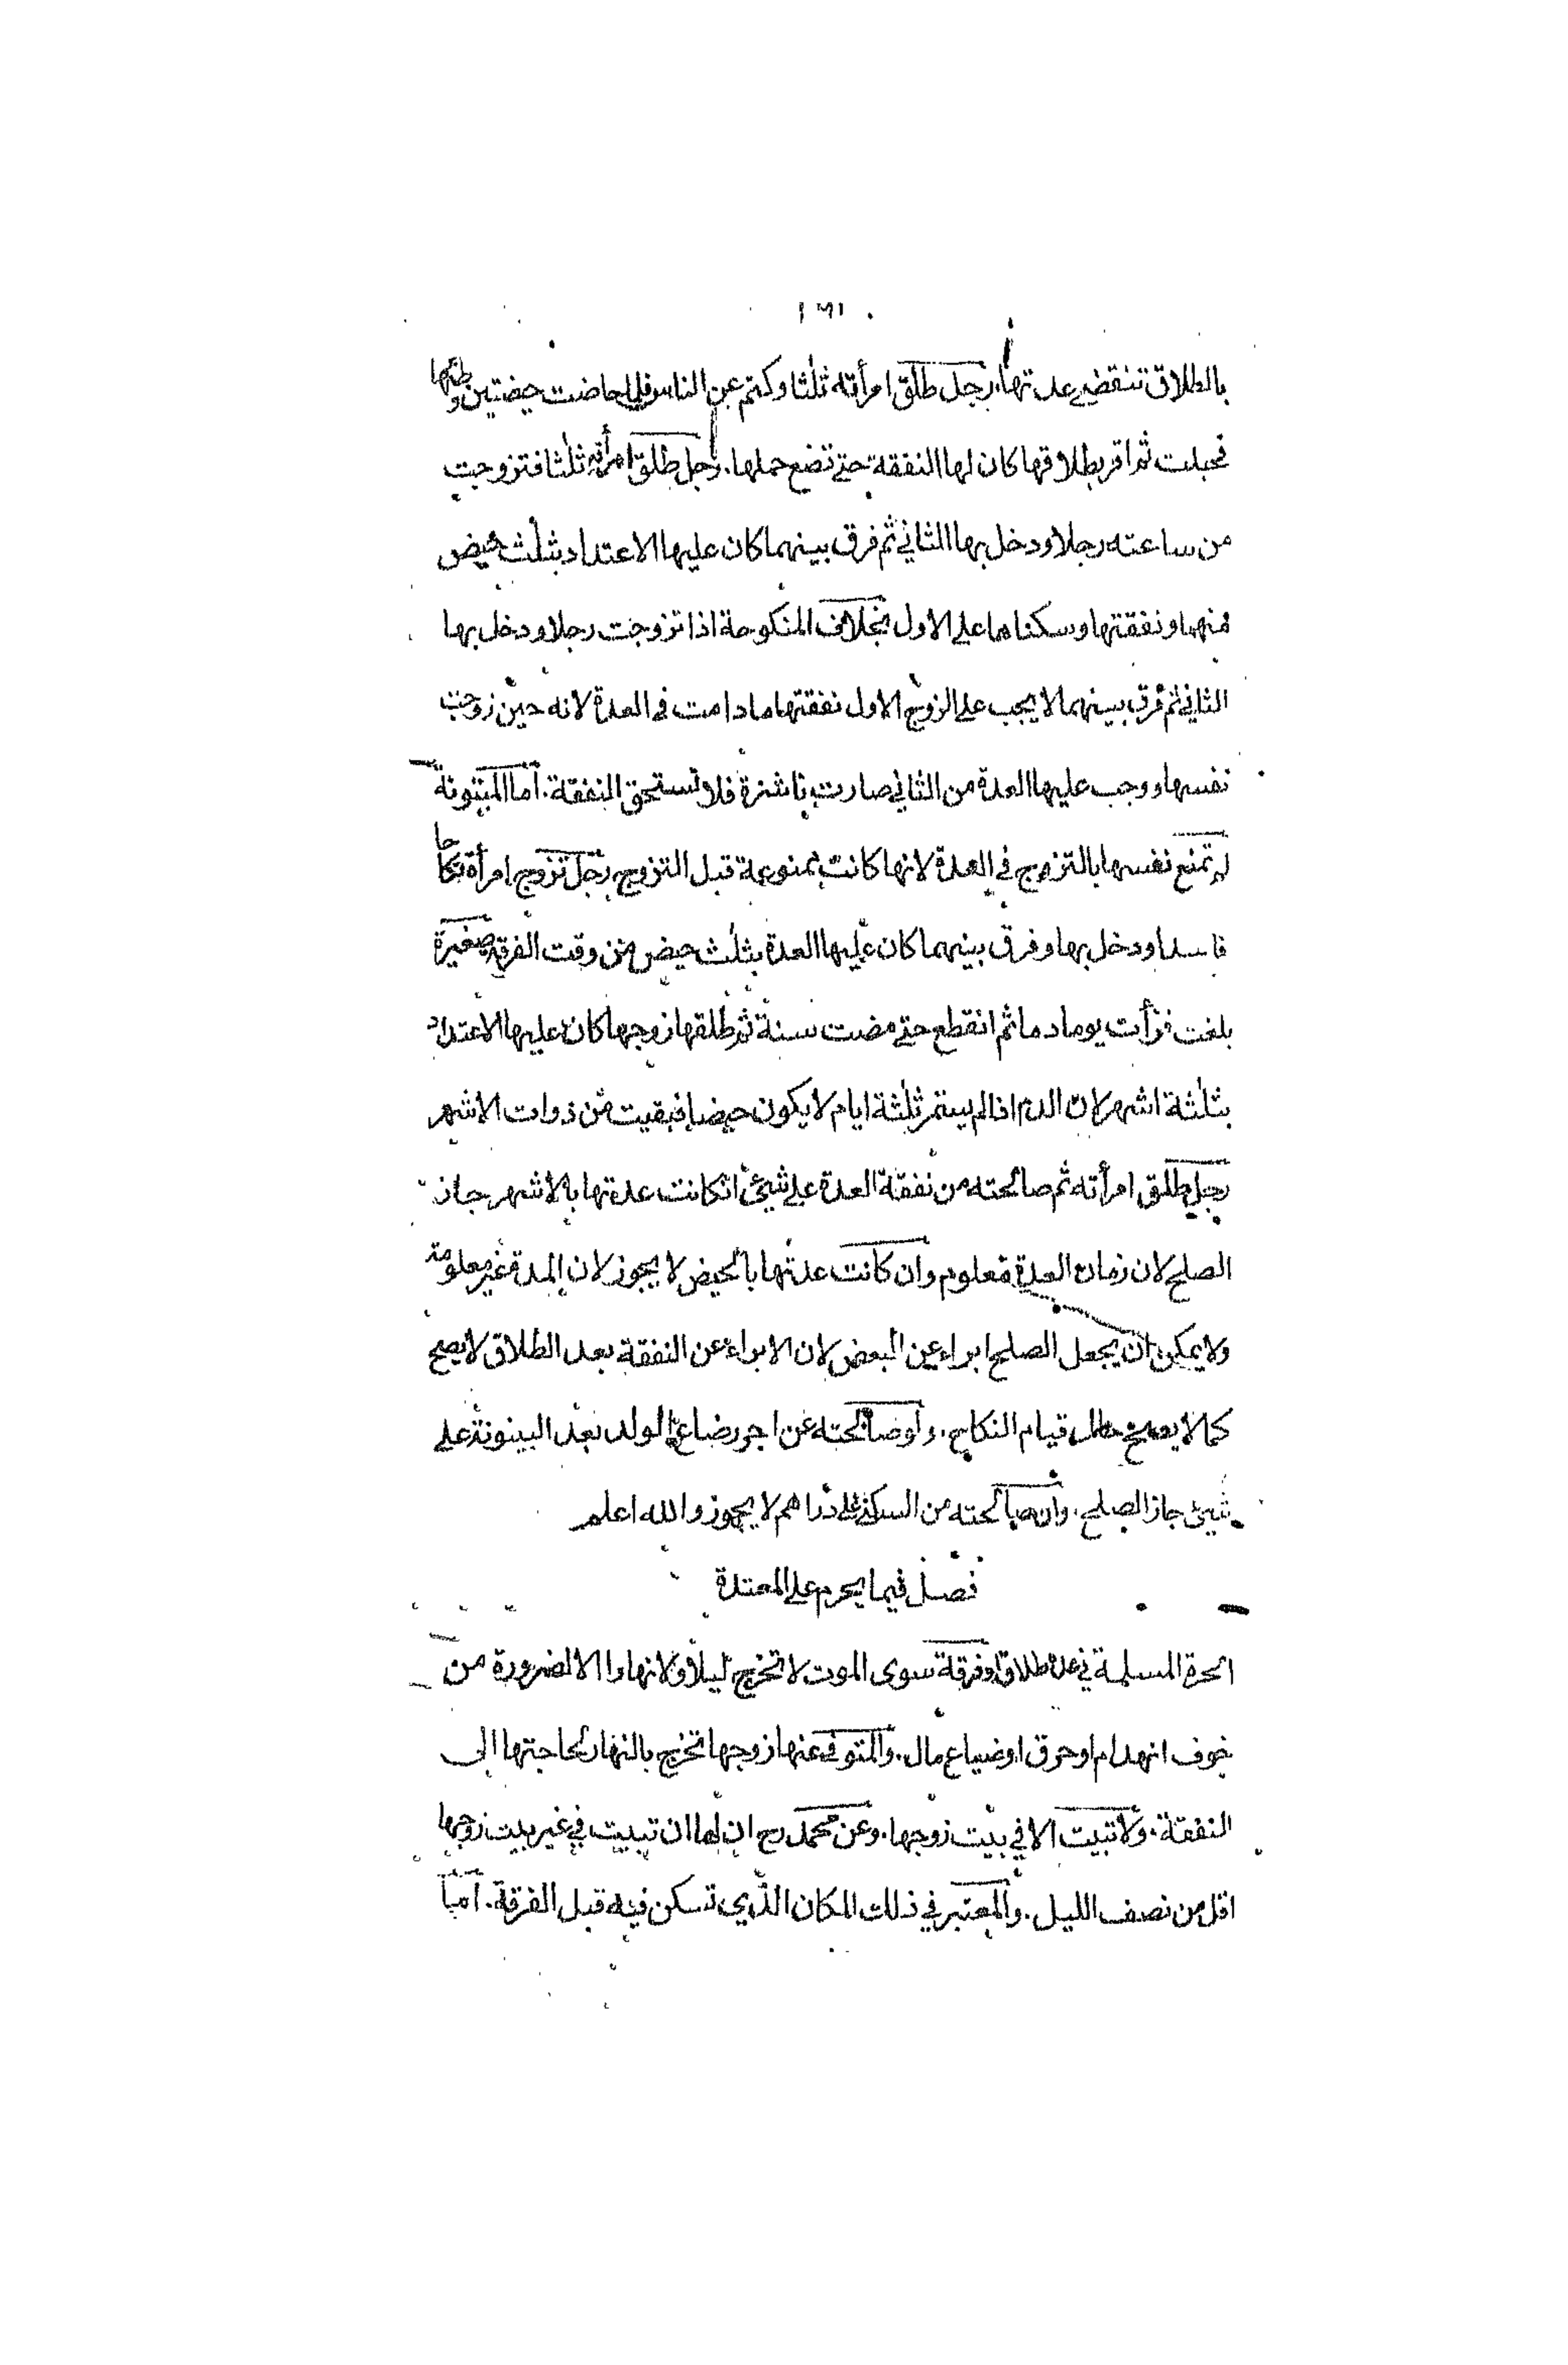 بالطلاق تنقضي عدتها. رجل طلق امرأته ثلثا وكتم عن الناس فلما حاضت حيضتين وطئها
فحبلت ثم اقر بطلاقها كان لها النفقة حتى تضع حملها. رجل طلق امرأته ثلثا فتزوجت
من ساعته رجلا ودخل بها الثاني ثم فرق بينهما كان عليها الاعتداد بثلث حيض
منهما ونفقتها وسكناها على الاول بخلاف المنكوحة اذا تزوجت رجلا ودخل بها
الثاني ثم فرق بينهما لا يجب على الزوج الاول نفقتها ما دامت في العدة لانه حين زوجت
نفسها ووجب عليها العدة من الثاني صارت ناشزة فلا تستحق النفقة. اما المبتوتة
لم تمنع نفسها بالتزوج في العدة لانها كانت ممنوعة قبل التزوج. رجل تزوج امرأة نكاحا
فاسدا ودخل بها وفرق بينهما كان عليها العدة بثلث حيض من وقت الفرقة. صغيرة
بلغت فرأت يوما دما ثم انقطع حتى مضت سنة ثم طلقها زوجها كان عليها الاعتداد
بثلثة اشهر لان الدم اذا لم يستمر ثلثة ايام لا يكون حيضا فبقيت من ذوات الاشهر
رجل طلق امرأته ثم صالحته من نفقة العدة على شيئ انكانت عدتها بالاشهر جاز
الصلح لان زمان العدة معلوم وان كانت عدتها بالحيض لا يجوز لان المدة غير معلومة
ولا يمكن ان يجعل الصلح ابراء عن البعض لان الابراء عن النفقة بعد الطلاق لا يصح
كما لا يصح حال قيام النكاح. ولو صالحته عن اجر رضاع الولد بعد البينونة على
شيئ جاز الصلح. وان صالحته من السكنى على دراهم لا يجوز والله اعلم
فصل فيما يحرم على المعتدة
الحرة المسلمة في عدة طلاق او فرقة سوى الموت لا تخرج ليلا ولا نهارا الا لضرورة من
خوف انهدام او حرق او ضياع مال. والمتوفى عنها زوجها تخرج بالنهار لحاجتها الى
النفقة. ولا تبيت الا في بيت زوجها. وعن محمد رح ان لها ان تبيت في غير بيت زوجها
اقل من نصف الليل. والمعتبر في ذلك المكان الذي تسكن فيه قبل الفرقة. اما